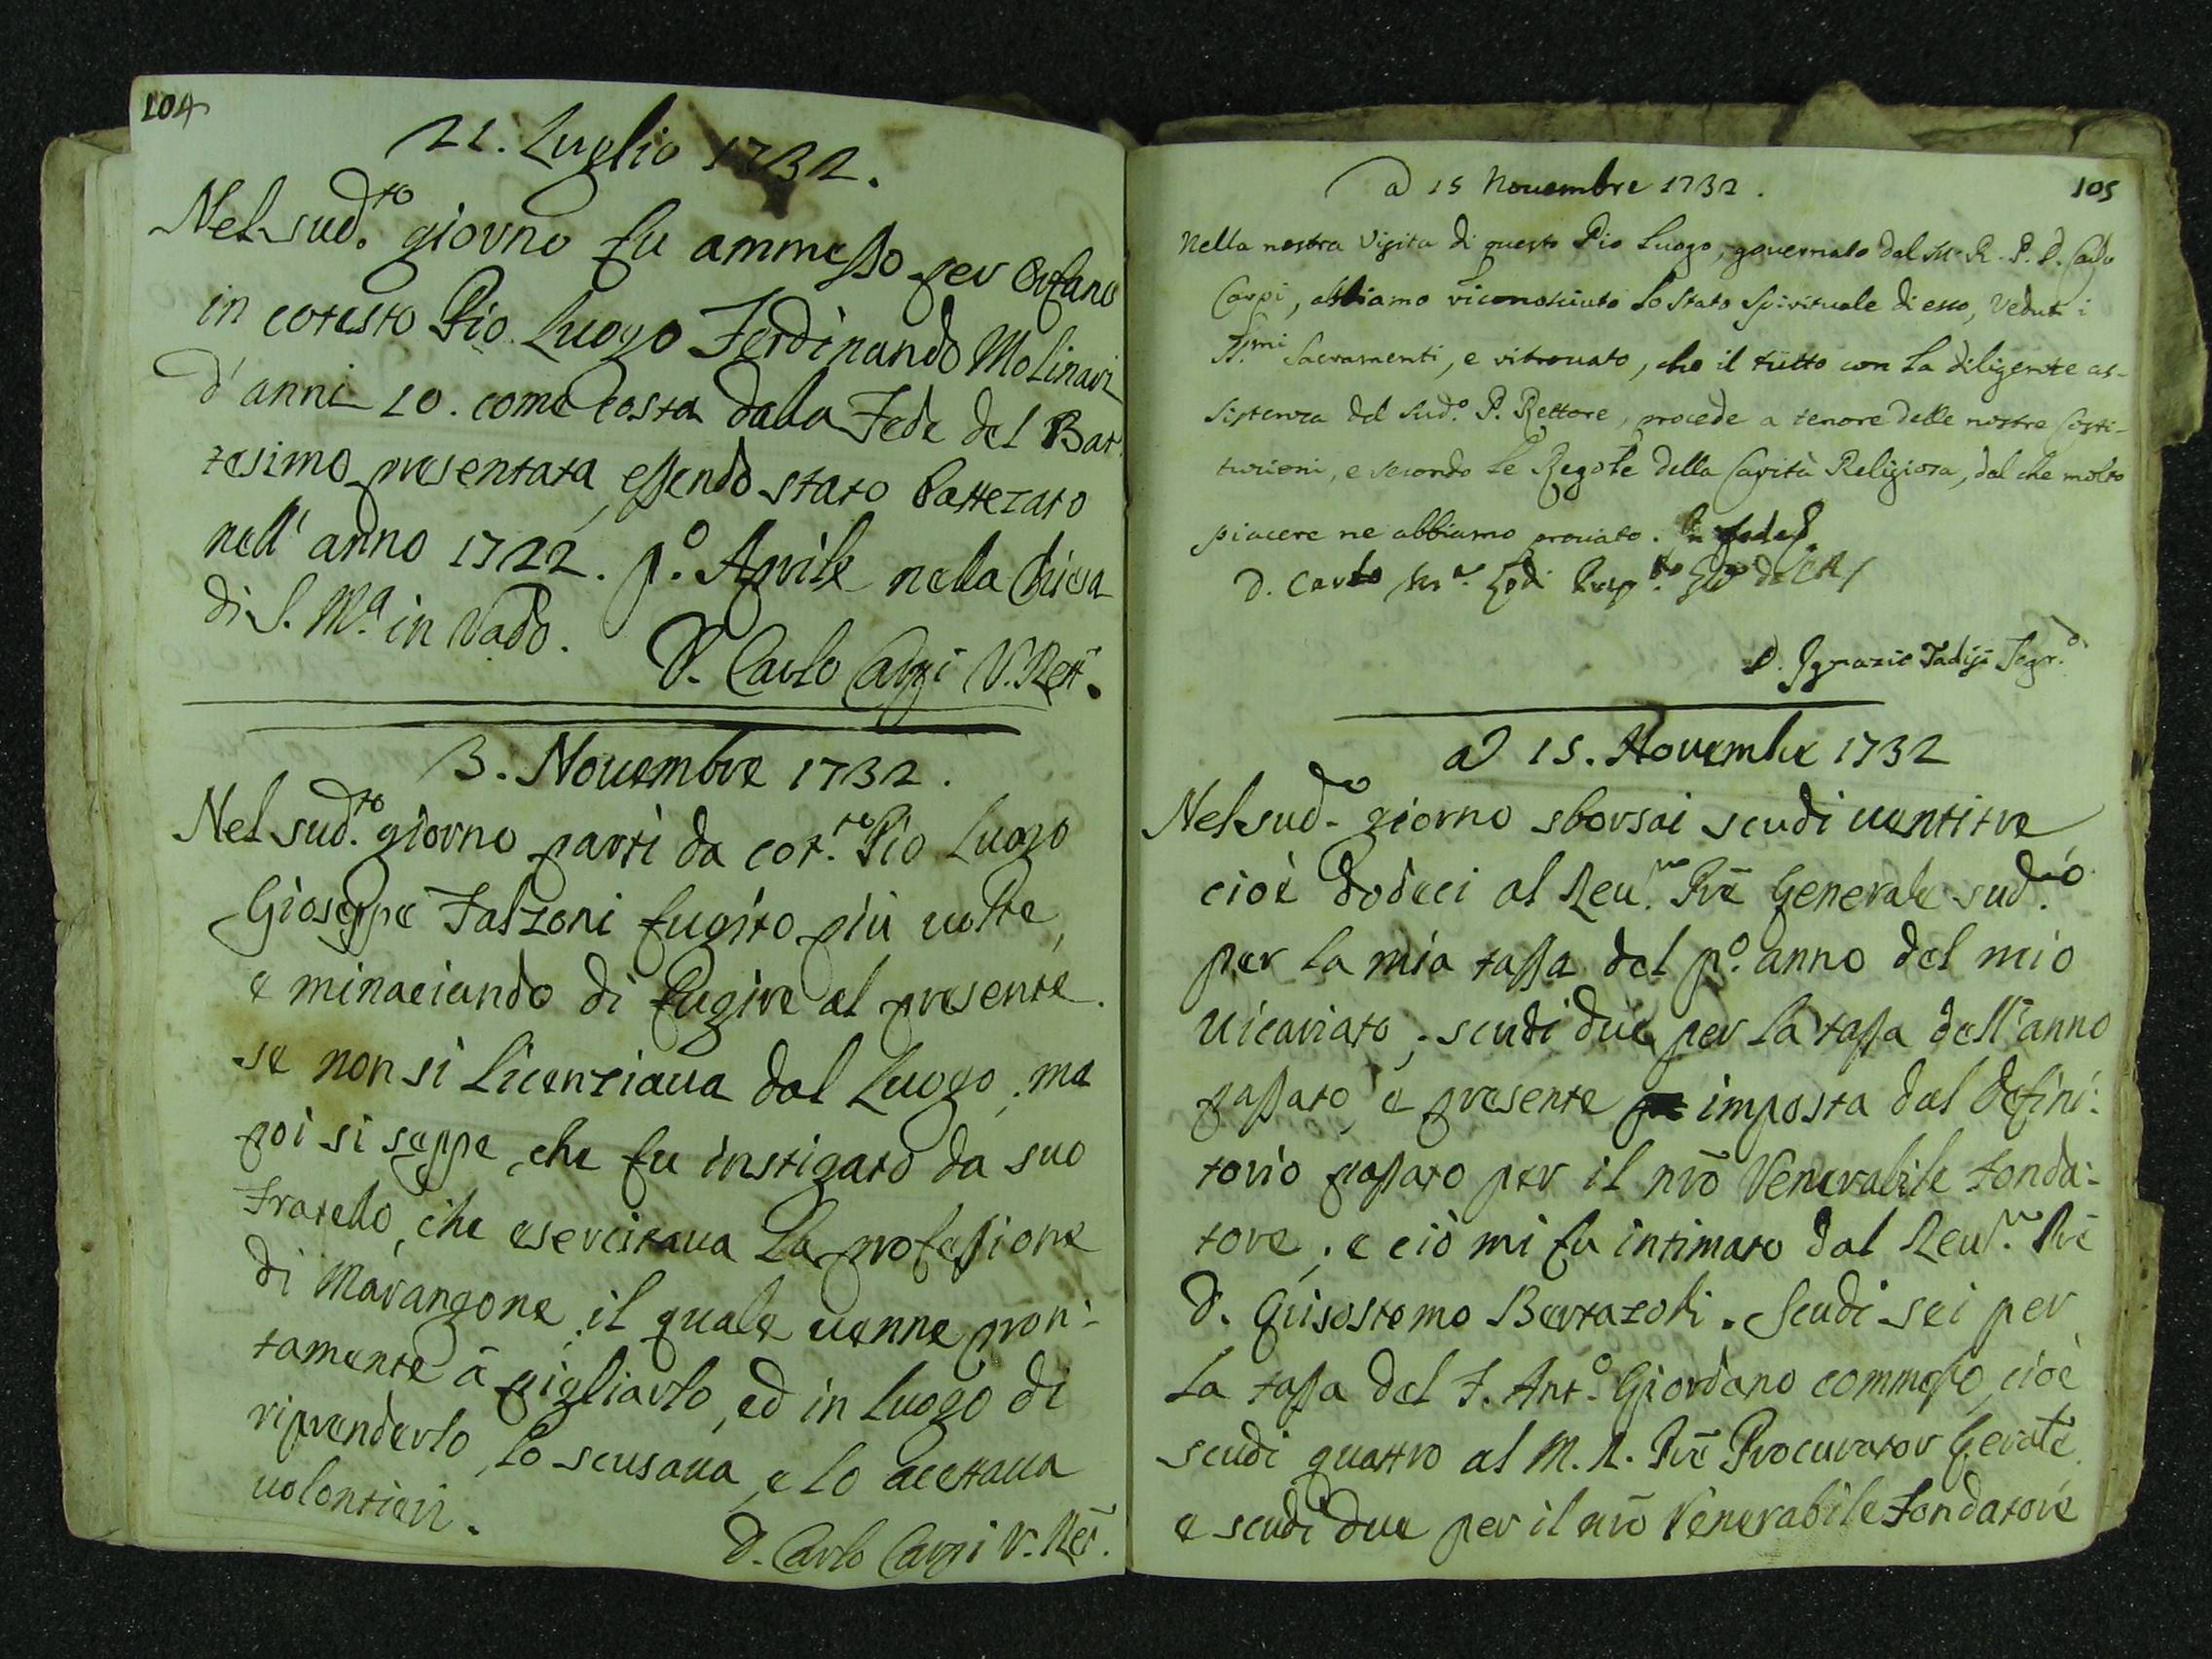 104
21. Luglio 1732.
Nel sud.to giorno fu ammesso per Orfano
in cotesto Pio Luogo Ferdinando Molinari
d'anni 10. come costa dalla Fede del Bat
tesimo presentata, essendo stato battezato
nell' anno 1722. p.o Aprile nella Chiesa
di S. M.a in Vado.
D. Carlo Carpi V. Rett.
3. Novembre 1732.
Nel sud.to giorno partì da cot.to Pio Luogo
Gioseppe Falzoni fugito più volte,
e minaciando di fugire al presente.
se non si licenziava dal Luogo; ma
poi si seppe, che fu instigato da suo
Fratello, che esercitava la professione
di Marangone, il quale venne pron:
tamente à pigliarlo, ed in luogo di
riprenderlo, lo scusava, e lo acettava
volontieri.
D. Carlo Carpi V. Ret.
105
a 15 Novembre 1732.
Nella nostra Visita di questo Pio Luogo, governato dal M. R. P. D. Carlo
Carpi, abbiamo riconosciuto lo Stato Spirituale di esso, Veduti i
SS.mi Sacramenti, e ritrovato, che il tutto con la diligente as-
sistenza del Sud.o P. Rettore, procede a tenore delle nostre Costi-
tuzioni, e secondo le Regole della Carità Religiosa, dal che molto
piacere ne abbiamo provato. In fede
D. Carlo M.a Lodi
D. Ignazio Segr.o
a 15. Novembre 1732
Nel sud.o giorno sborsai scudi ventitre
cioè dodeci al Reu.mo Prē Generale sud.o
per la mia tassa del p.o anno del mio
Vicariato; scudi due per la tassa dell'anno
passato, e presente imposta dal Defini:
torio passato per il nrō Venerabile Fonda:
tore; e ciò mi fu intimato dal Reu.mo Prē
D. Grisostomo Bertazoli. Scudi sei per
la tassa del F. Ant.o Giordano commesso, cioè
scudi quattro al M. R. Prē Procurator Gerāle
e scudi due per il nrō Venerabile Fondatore